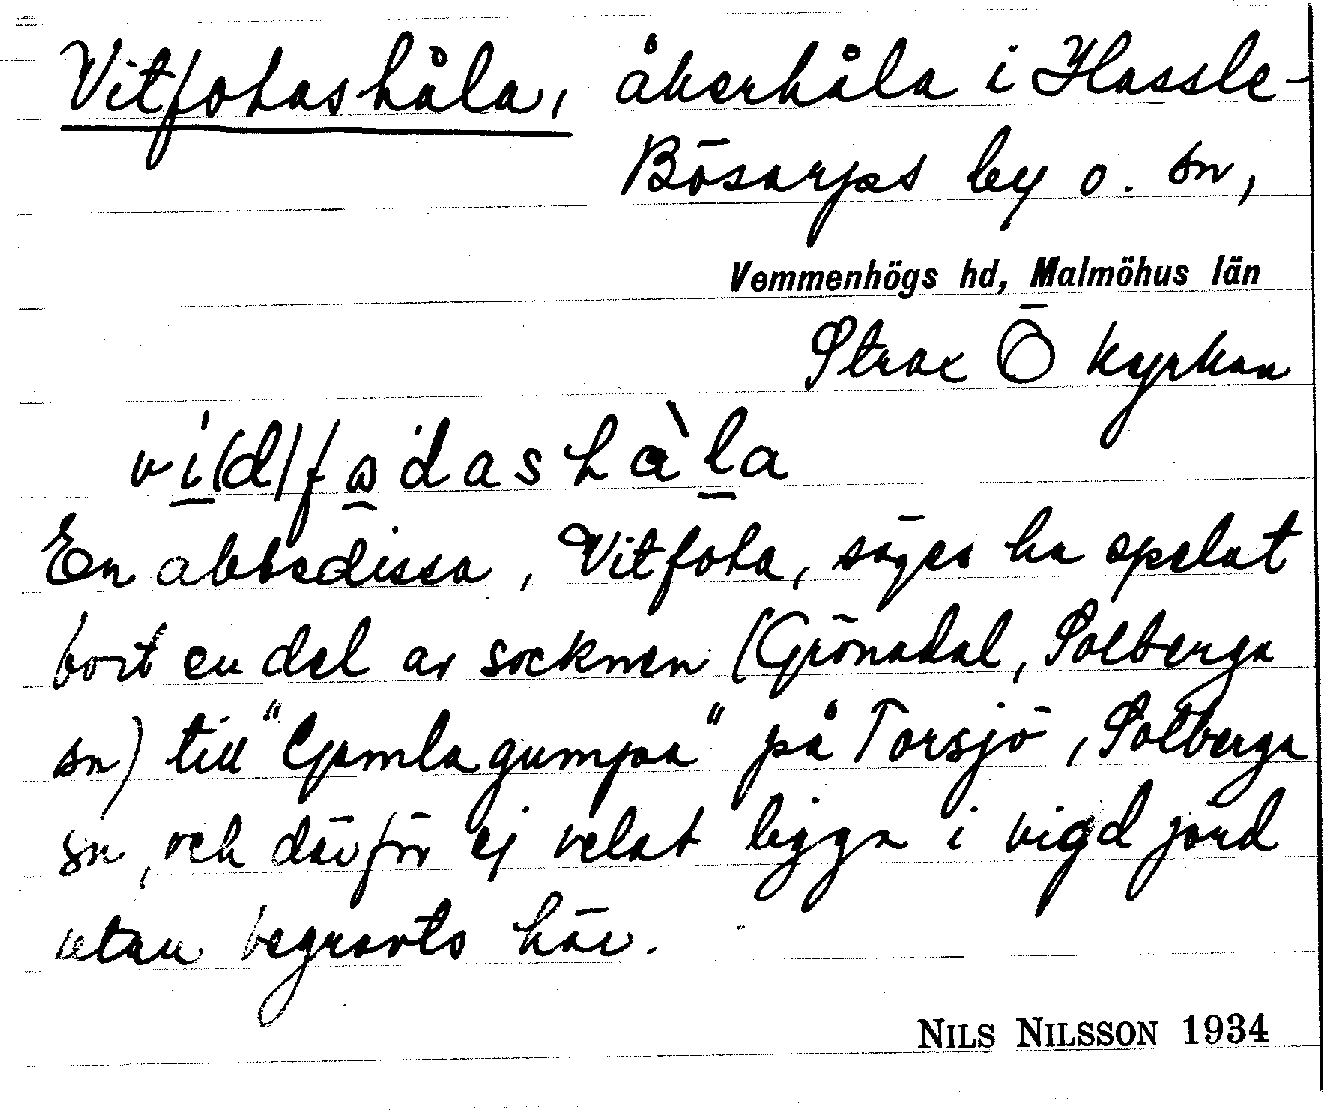 Vitfotashåla, åkerhåla i Hassle-
Bösarps by o. sn,
Vemmenhögs hd, Malmöhus län
Strax Ö kyrkan
vi(d)fωdashàla
En abbedissa, Vitfota, säges ha spelat
bort en del av socknen (Grönadal, Solberga
sn) till "Gamlagumpa" på Torsjö, Solberga
sn, och därför ej velat ligga i vigd jord
utan begravts här.
NILS NILSSON 1934